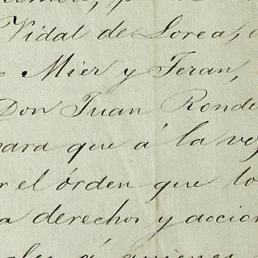 Vidal de Lorea,
Mier y Teran,
Don Juan Ronde
para que á la vo
r el órden que lo
a derechos y accion
á quienes